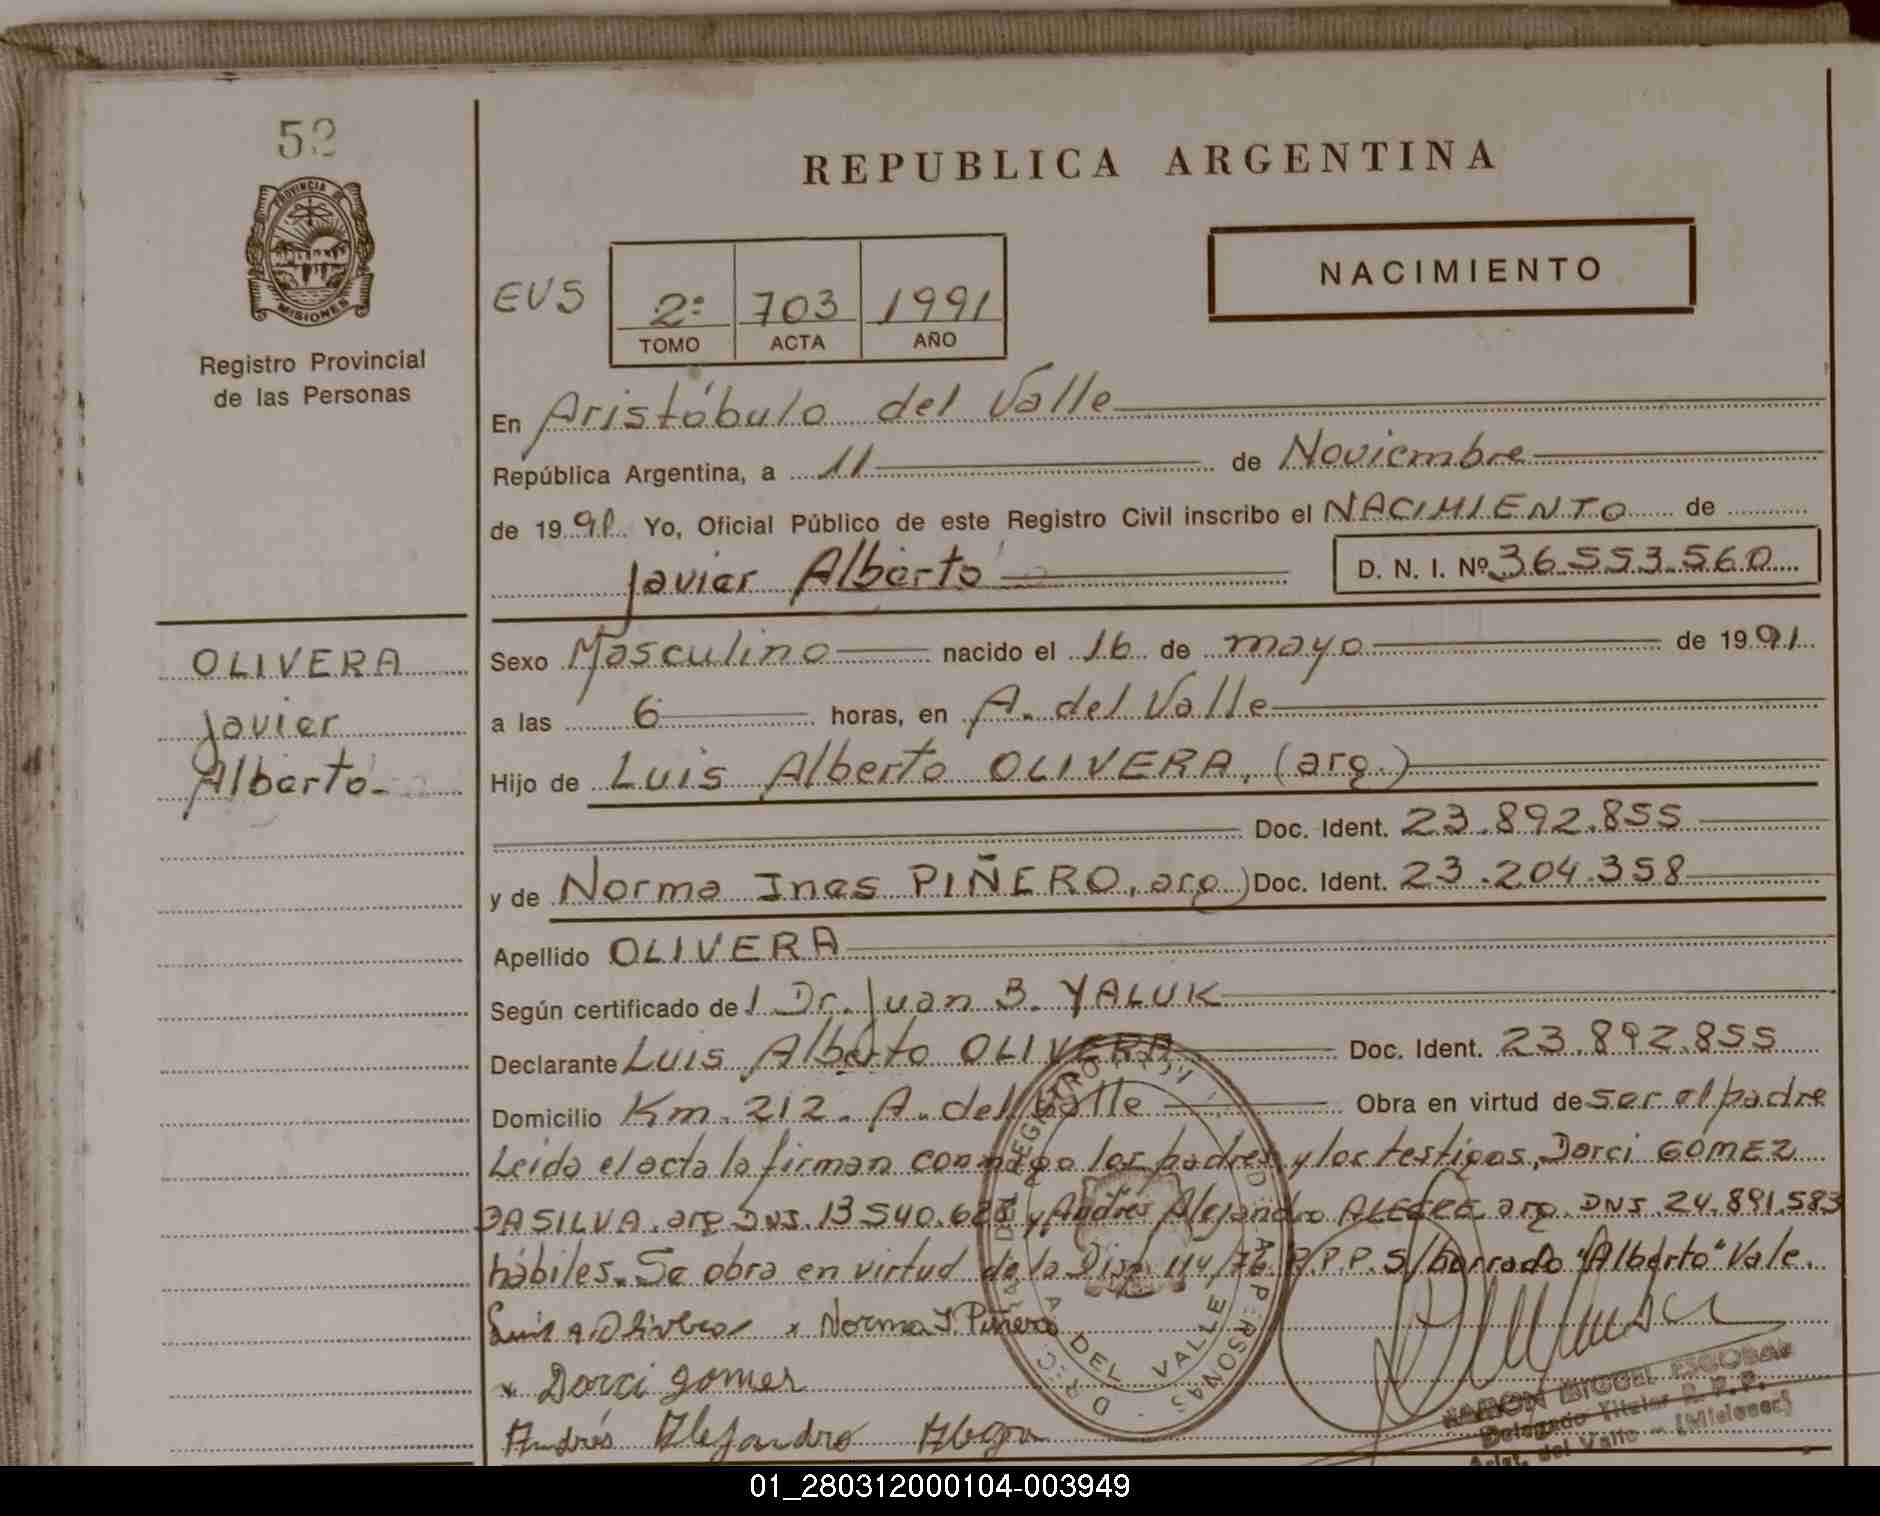 52
PROVINCIA DE
MISIONES
Registro Provincial
de las Personas
REPUBLICA ARGENTINA
NACIMIENTO
EVS
2º 703 1991
TOMO ACTA AÑO
En Aristóbulo del Valle
República Argentina, a 11 de Noviembre
de 1991 Yo, Oficial Público de este Registro Civil inscribo el NACIMIENTO de
Javier Alberto D. N. I. Nº 36.553.560
OLIVERA
Javier
Alberto.
Sexo Masculino nacido el 16 de mayo de 1991
a las 6 horas, en A. del Valle
Hijo de Luis Alberto OLIVERA, (arg.)
Doc. Ident. 23.892.855
y de Norma Ines PIÑERO, arg) Doc. Ident. 23.204.358
Apellido OLIVERA
Según certificado del Dr. Juan B. YALUK
Declarante Luis Alberto OLIVERA Doc. Ident. 23.892.855
Domicilio Km. 212. A. del Valle Obra en virtud de ser el padre
Leida el acta la firman conmigo los padres y los testigos, Dorci GOMEZ
DASILVA. arg DNI. 13.540.6 y Andrés Alejandro ALEGRE. arg. DNI. 24.891.583
hábiles. Se obra en virtud de la Disp. 114/76 R.P.P. S/borrado "Alberto" Vale.
Luis A. Olivera x Norma I. Piñero
x Dorci gomes
Andrés Alejandro Alegre
A DEL VALLE
PERSONAS
MIGUEL ESCOBAR
Delegado Titular R. P. P.
Arist. del Valle - (Misiones)
01_280312000104-003949